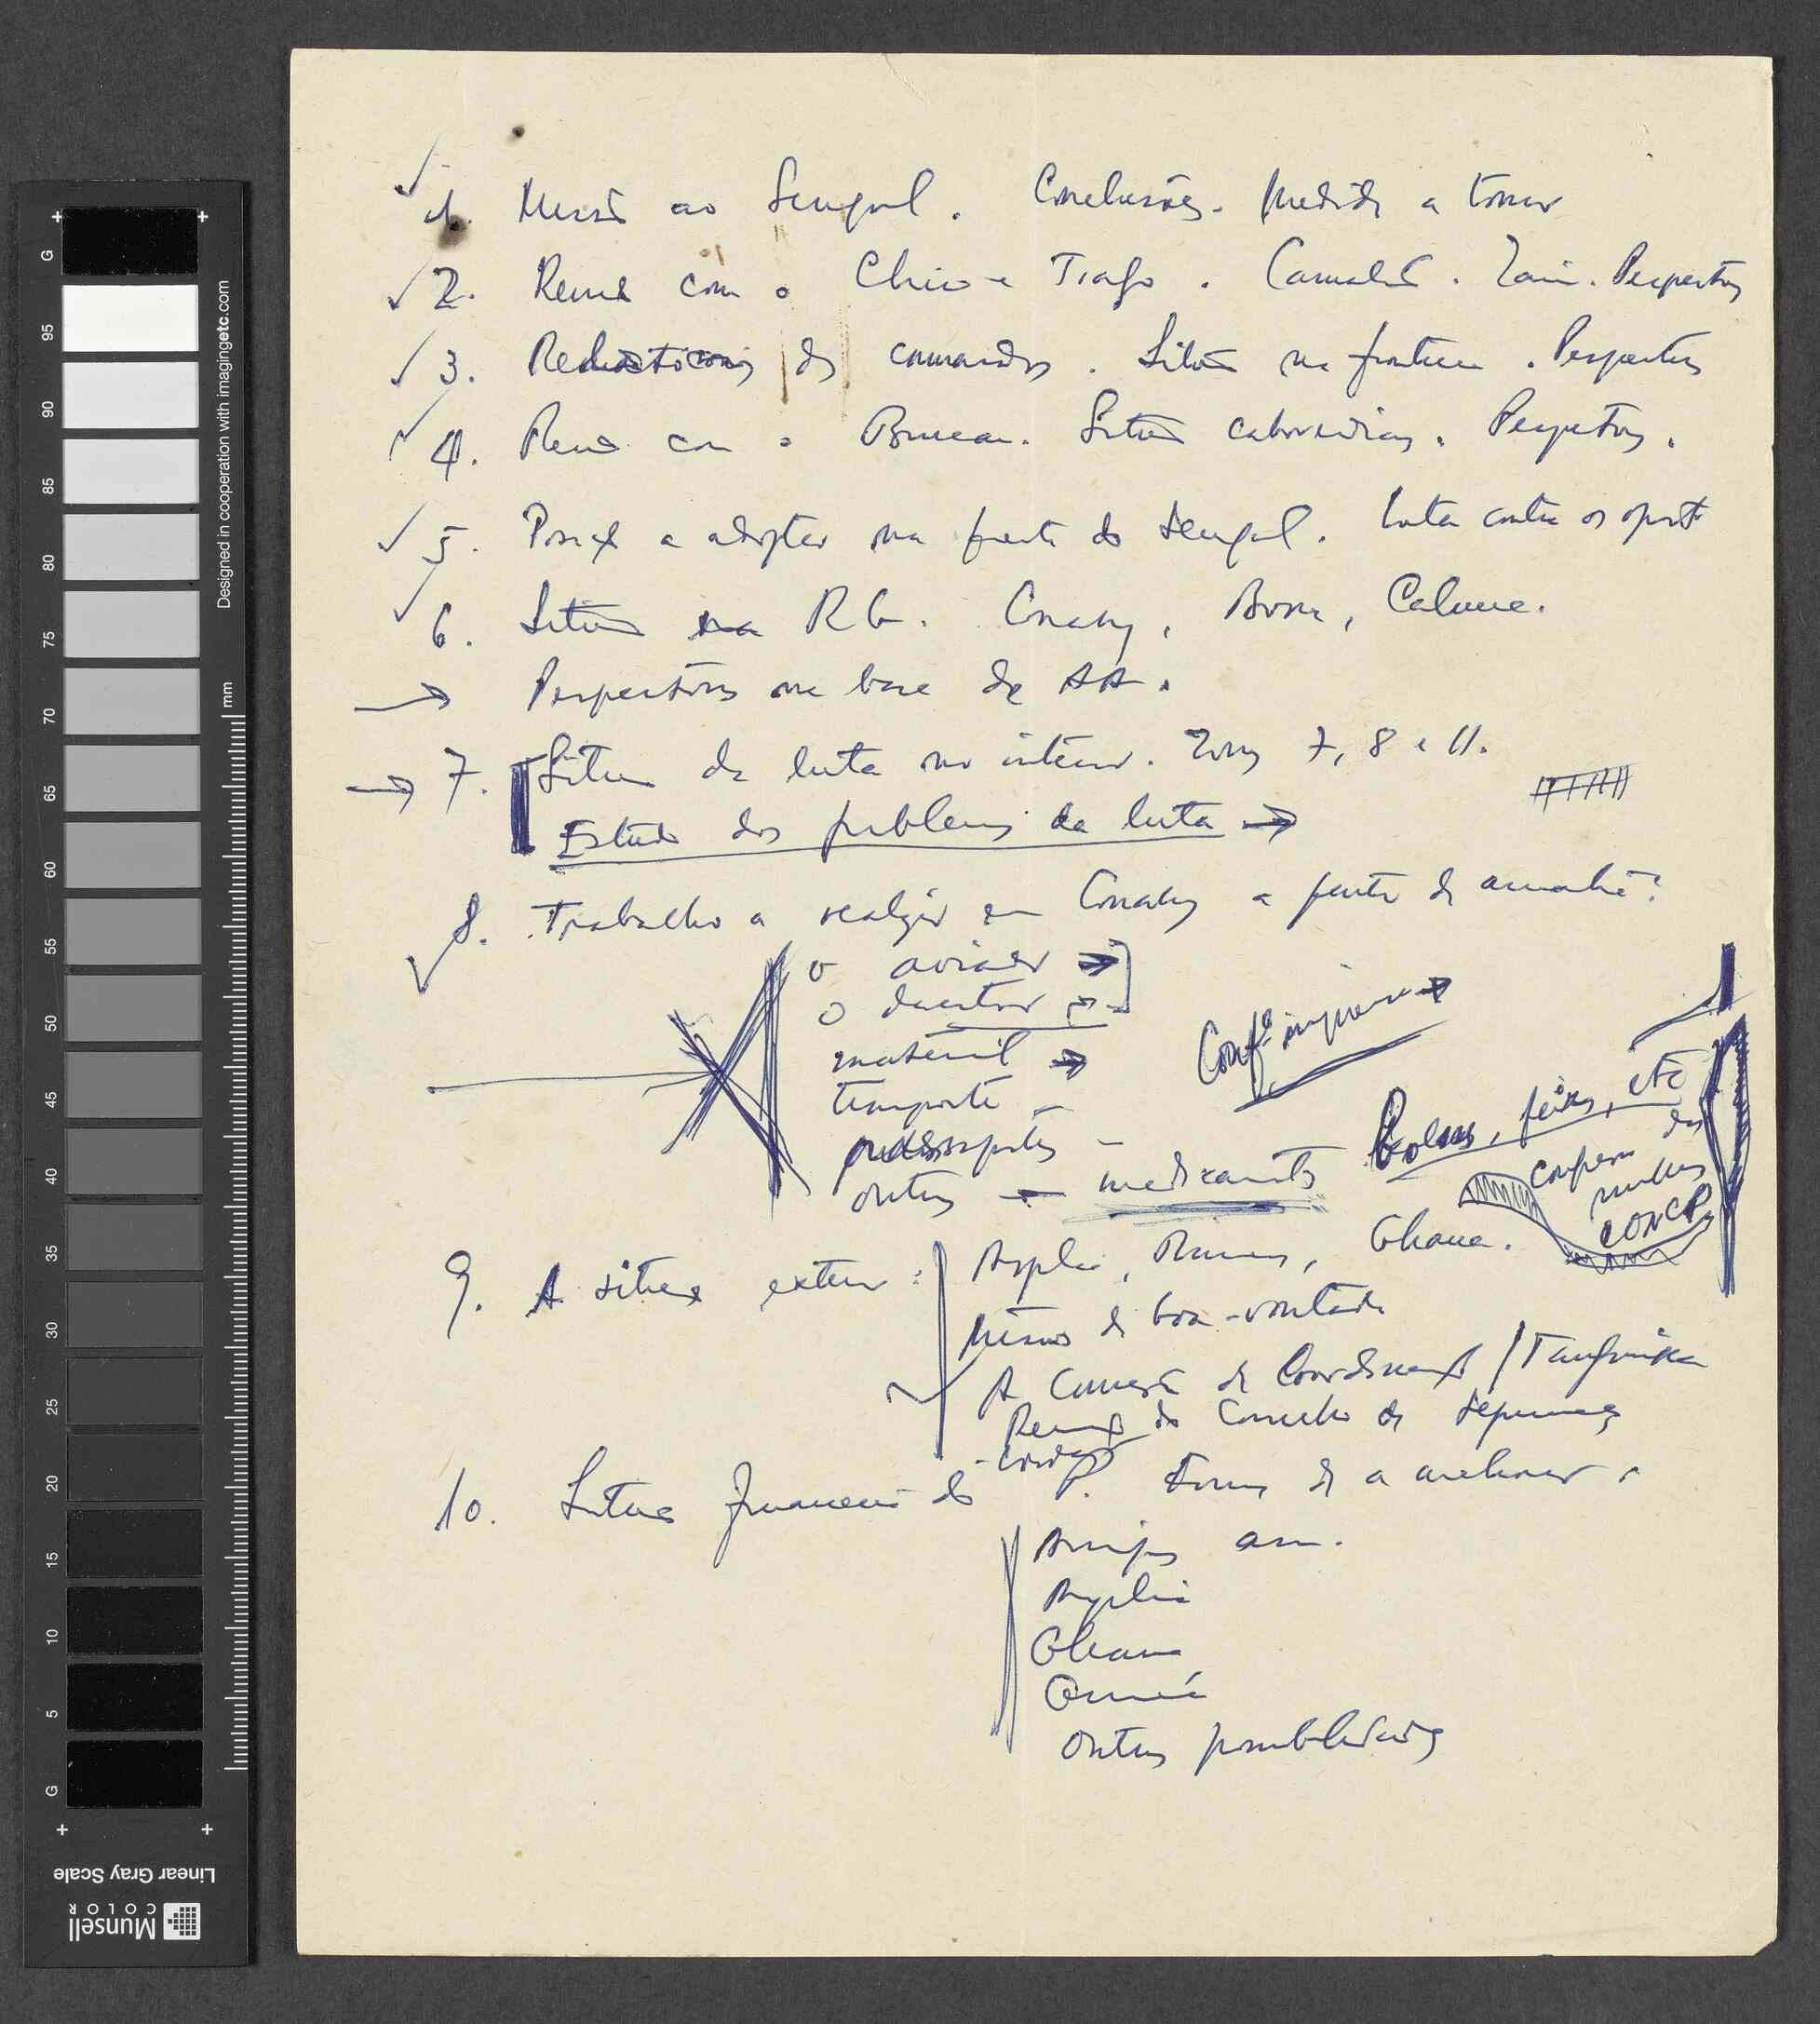 1. Missão ao Senegal. Conclusões. Medidas a tomar
2. Reunião com o Chico e Tiago. Zain. Perspectivas
3. dos comandos. Situação na fronteira. Perspectivas
4. Reunião com o Bureau. Situação caboverdianos. Perspectivas.
5. Posição a adoptar na frente do Senegal. Luta contra os oport
6. Situação na RG. Conakry, Boké,
Perspectivas na base de AA.
7. Situação da luta no interior. Zonas 7, 8 e 11.
Estudo dos problemas da luta →
8. Trabalho a realizar em Conakry a partir de amanhã:
o avião →
o
material →
Conf. imprensa →
transporte -
passaportes -
outros - medicamentos
Bolsas, feiras, etc
das
mulheres
CONCP
9. A situação exterior: Argélia, Ghana.
Missão de boa-vontade
A Comissão de Coordenação / Tanganika
Reunião do Conselho de Segurança
10. Situação financeira do P. Formas de a melhorar.
Amigos am.
Argélia
Ghana
Guiné
Outras possibilidades
G
95
90
85
80
75
70
65
60
55
50
45
40
35
30
25
20
15
10
5
G
mm
Designed in cooperation with imagingetc.com
Linear Gray Scale
Munsell
COLOR